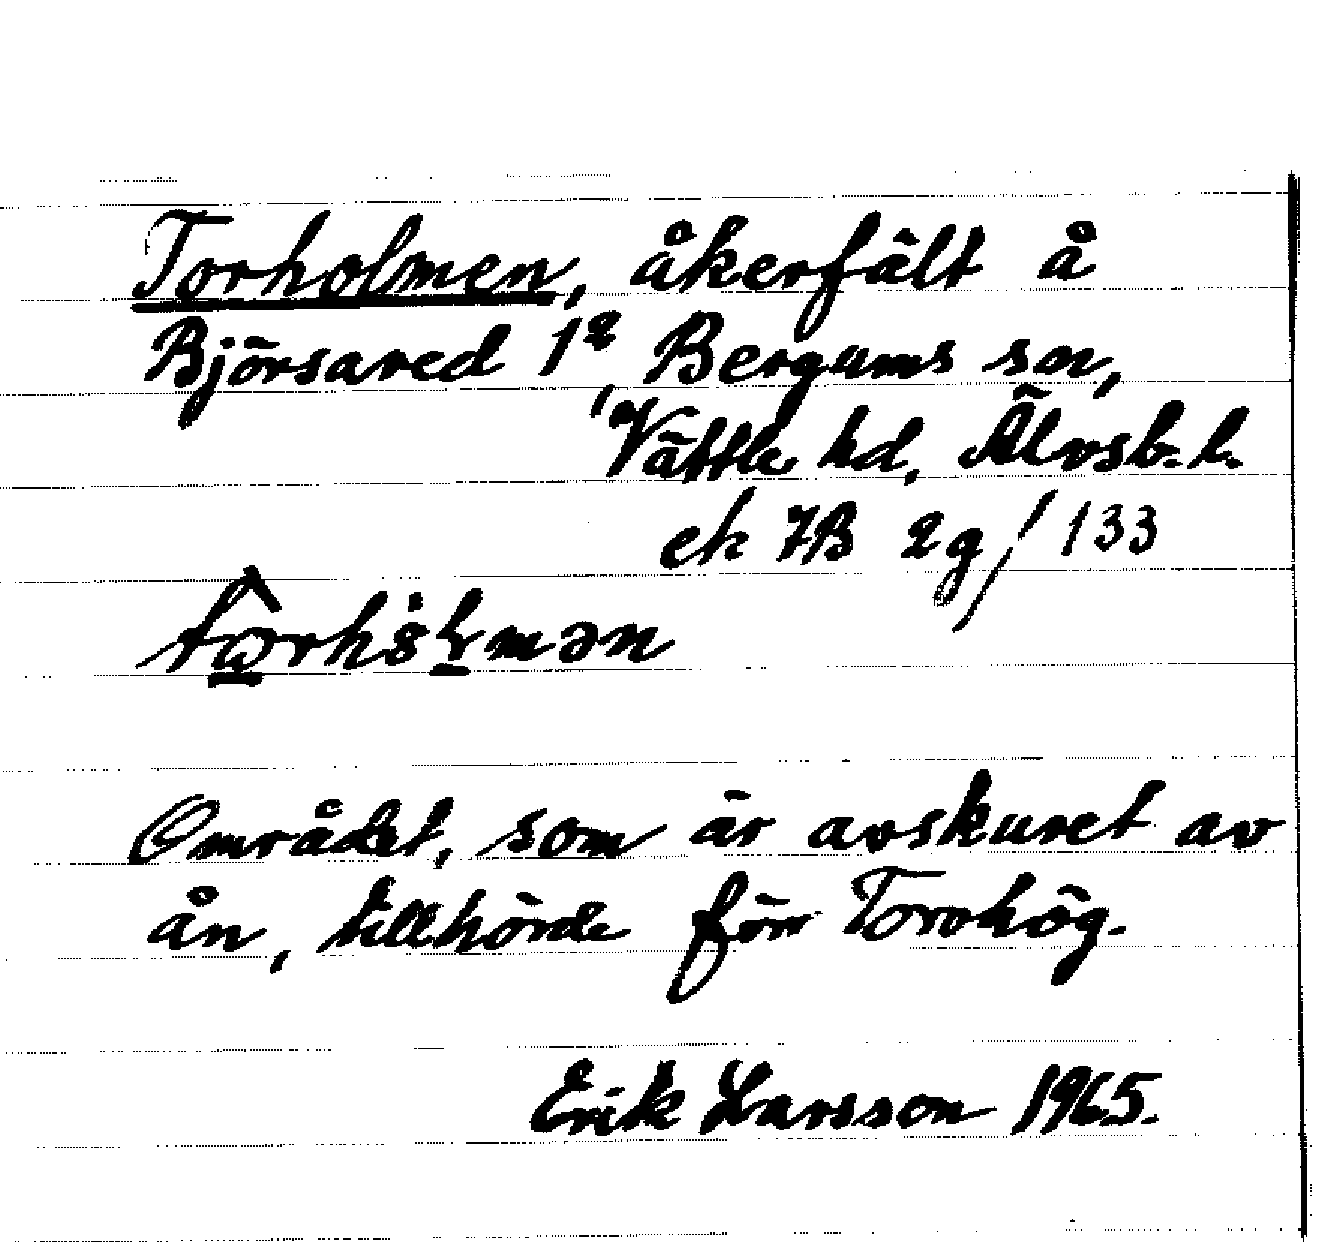 Torholmen, åkerfält å
Björsared 1², Bergums sn,
Vättle hd, Älvsb. l.
ek 7B 2g/133
Området, som är avskuret av
ån, tillhörde förr Torohög.
Erik Larsson 1965.